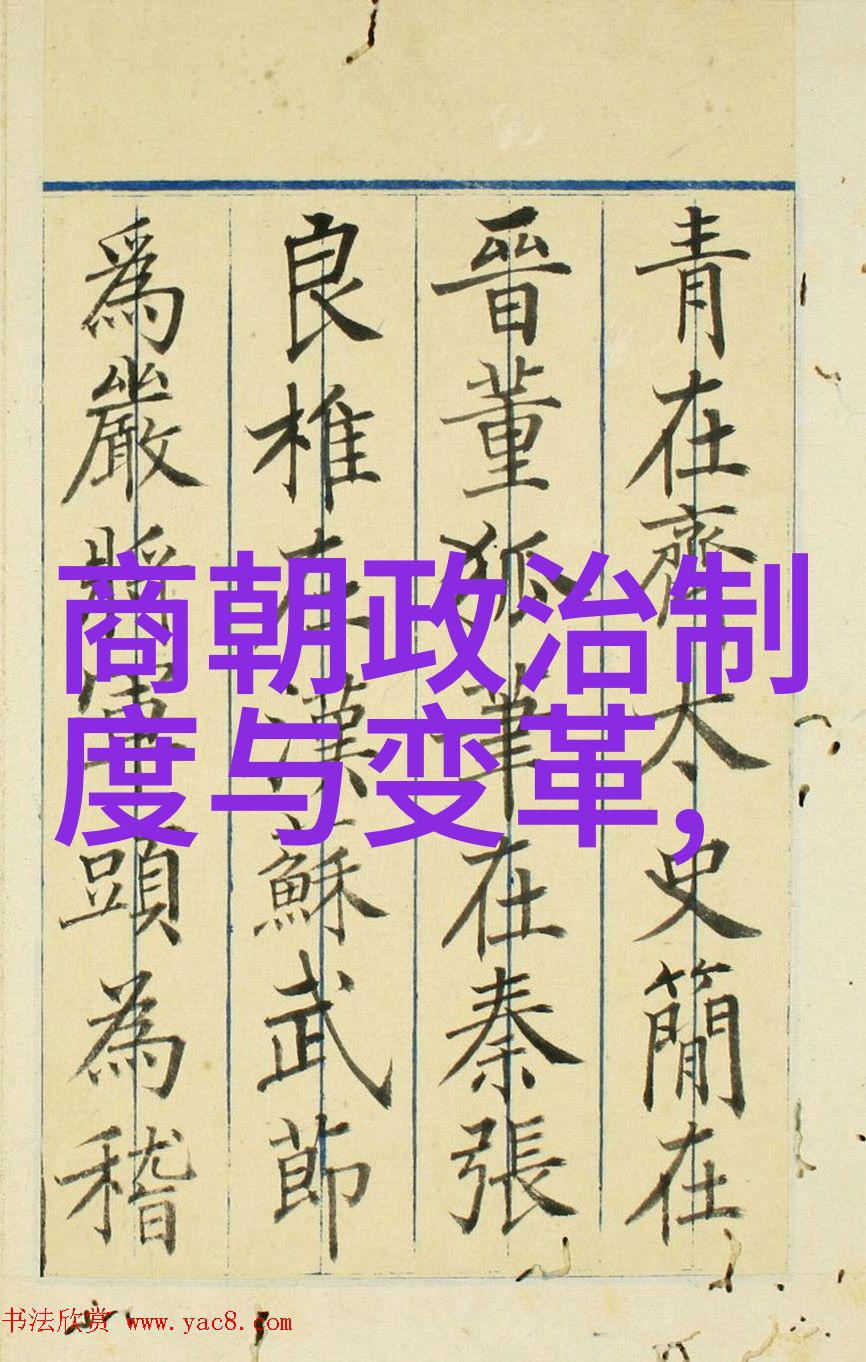 青在齊太史簡在
晉董狐筆在秦張
良椎在漢蘇武節
為嚴將軍頭為嵇
商朝政治制
度与变革,
书法欣赏 www.yac8.com